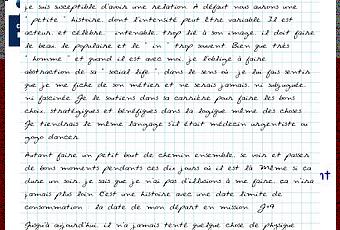 je suis susceptible d'avoir une relation. A défaut nous avons une
"petite" histoire dont l'intensité peut être variable. Il est
acteur, et célèbre, intenable, trop lié à son image, il doit faire
le beau, le populaire et le "in" trop souvent. Bien que très
"homme" et quand il est avec moi, je l'oblige à faire
abstraction de sa "social life" dans le sens où je lui fais sentir
que je me fiche de son métier et ne serais jamais, ni subjuguée,
ni fascinée. Je le soutiens dans sa carrière pour faire les bons
choix, stratégiques et bénéfiques dans la logique même des choses.
Je tiendrais le même langage s'il était médecin urgentiste ou
gogo dancer.
Autant faire un petit bout de chemin ensemble, se voir et passer
de bons moments pendants ces dix jours où il est là. Même si ça
dure un soir, je sais que je n'ai pas d'illusions à me faire, ça n'ira
jamais plus loin. C'est une histoire avec une date limite de
consommation : la date de mon départ en mission. J-9
Jusqu'à aujourd'hui, il n'a jamais tenté quelque chose de physique